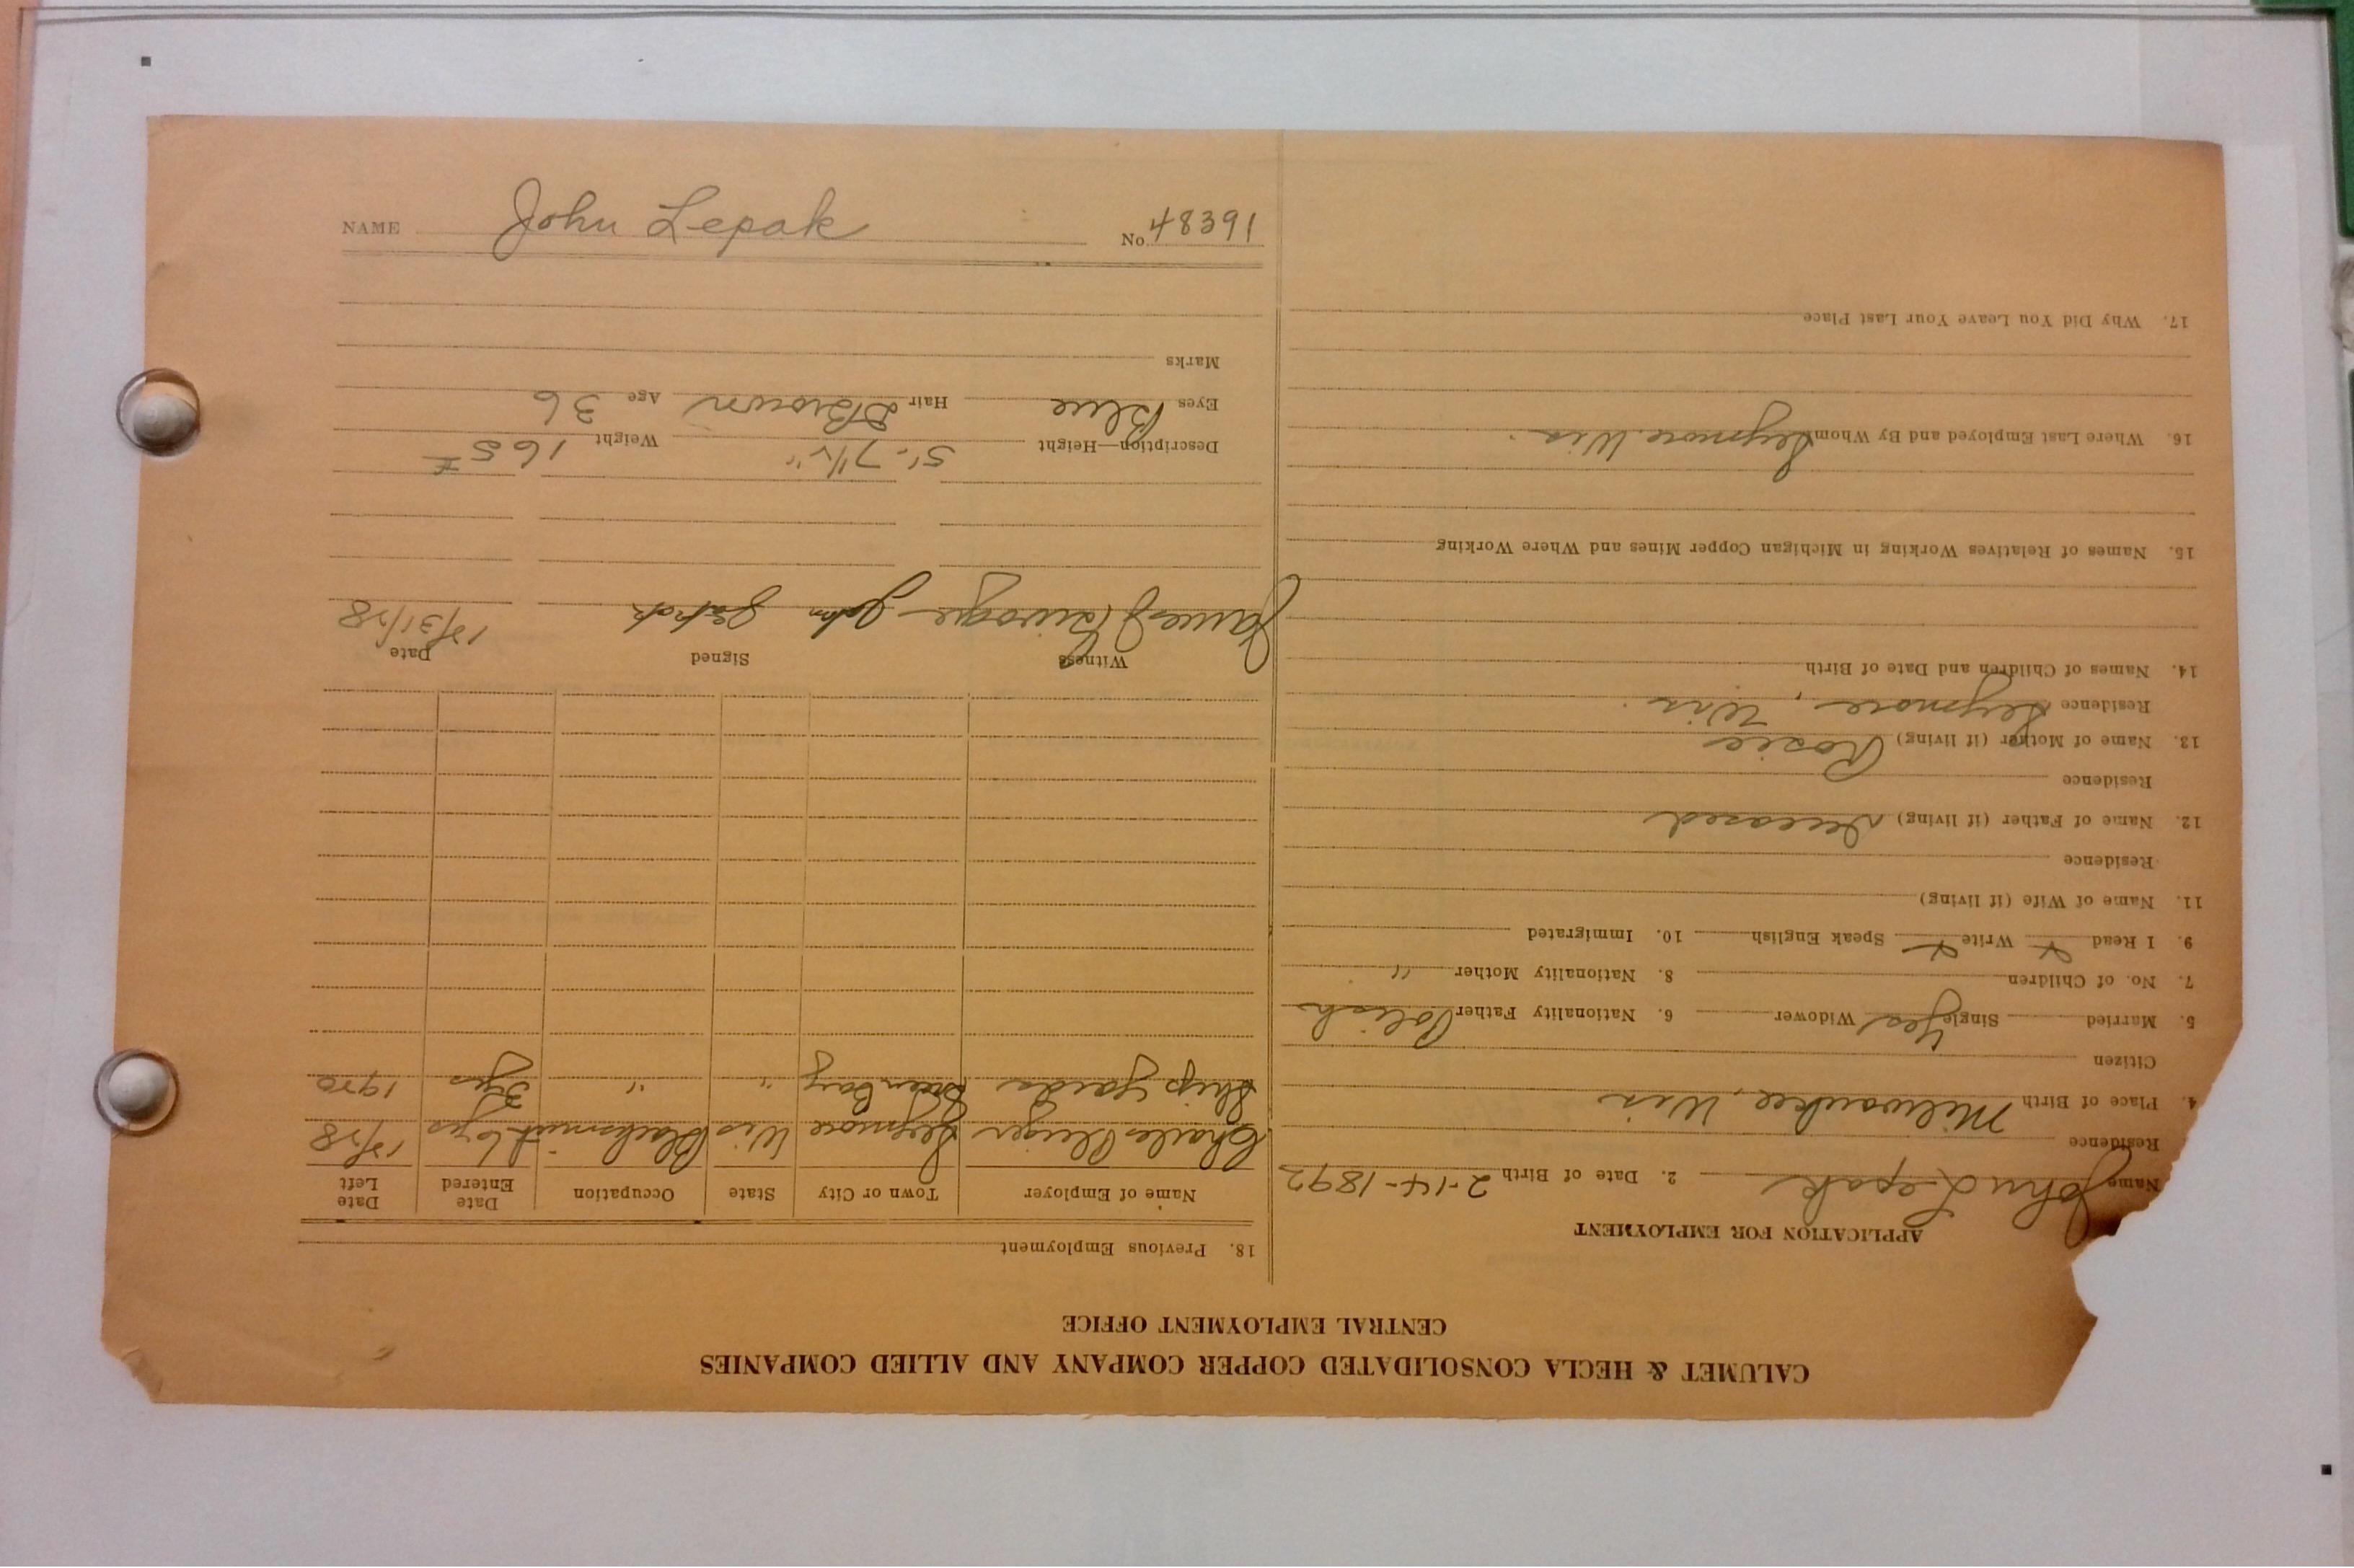 NAME John Lepak No. 48391
CALUMET & HECLA CONSOLIDATED COPPER COMPANY AND ALLIED COMPANIES
CENTRAL EMPLOYMENT OFFICE
APPLICATION FOR EMPLOYMENT
Name John Lepak 2. Date of Birth 2-14-1892
Residence
4. Place of Birth Milwaukee, Wis
Citizen
5. Married Single Yes Widower 6. Nationality Father Polish
7. No. of Children 8. Nationality Mother "
9. I Read x Write x Speak English 10. Immigrated
11. Name of Wife (if living)
Residence
12. Name of Father (if living) Deceased
Residence
13. Name of Mother (if living) Rosie
Residence Seymore, Wis.
14. Names of Children and Date of Birth
15. Names of Relatives Working in Michigan Copper Mines and Where Working
16. Where Last Employed and By Whom Seymore, Wis.
17. Why Did You Leave Your Last Place
18. Previous Employment
Name of Employer Town or City State Occupation Date Entered Date Left
Charles Seymore Wis Blacksmith 6 yrs 12/28
Ship Yards Green Bay " " 3 yrs 1920
Witness Signed Date
James John 12/31/28
Description—Height 5'-7 1/2" Weight 165 #
Eyes Blue Hair D Brown Age 36
Marks